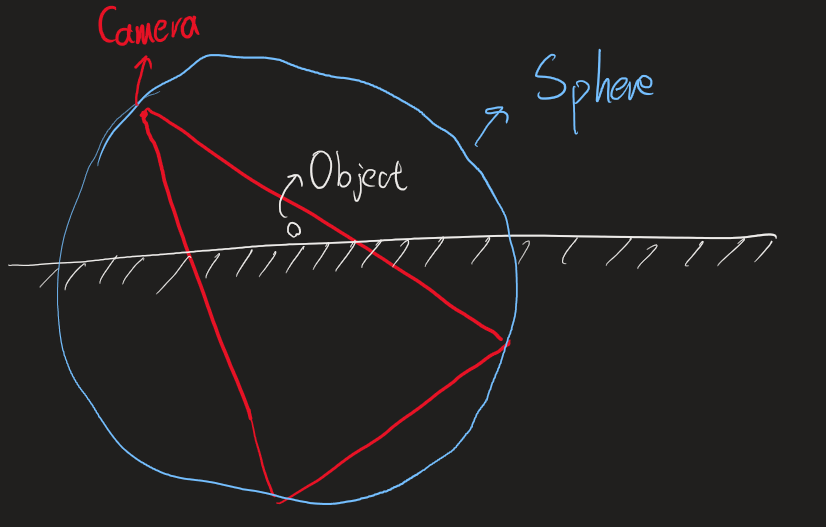 Camera
Sphere
Object